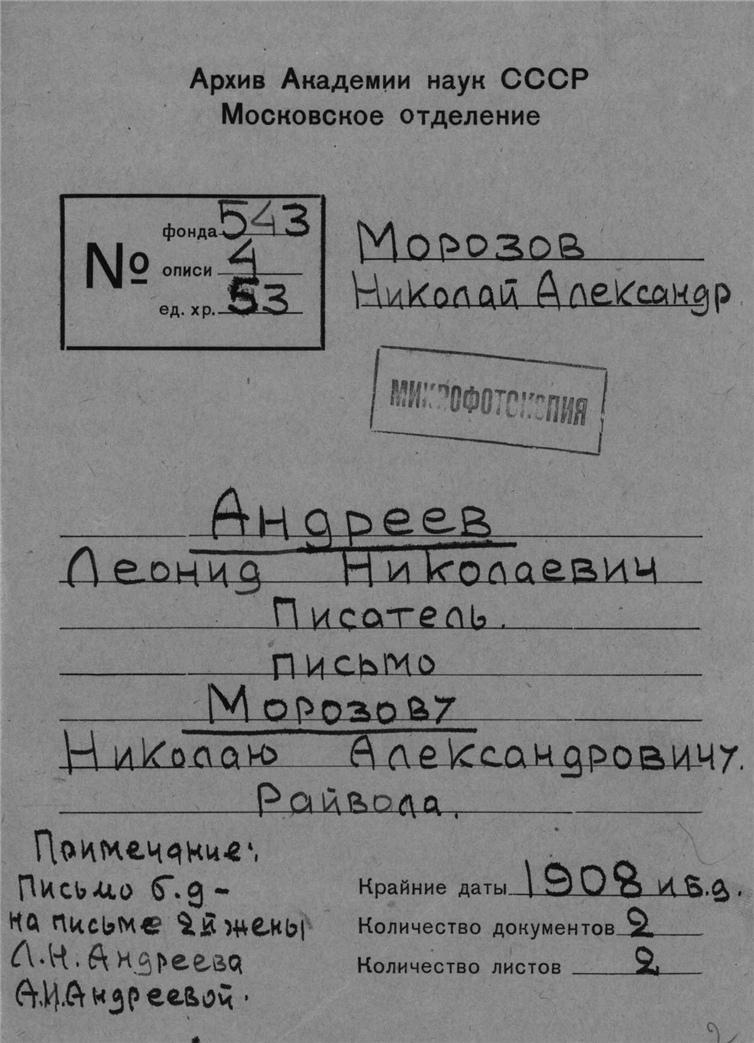 Архив Академии наук СССР
Московское отделение
№
фонда 543
описи 4
ед. хр. 53
Морозов
Николай Александр
МИКРОФОТОКОПИЯ
Андреев
Леонид Николаевич
Писатель.
письмо
Морозову
Николаю Александровичу.
Райвола.
Примечание:
Письмо б.д -
на письме 2й жены
Л.Н. Андреева
А.И. Андреевой.
Крайние даты 1908 и б.д.
Количество документов 2
Количество листов 2
2